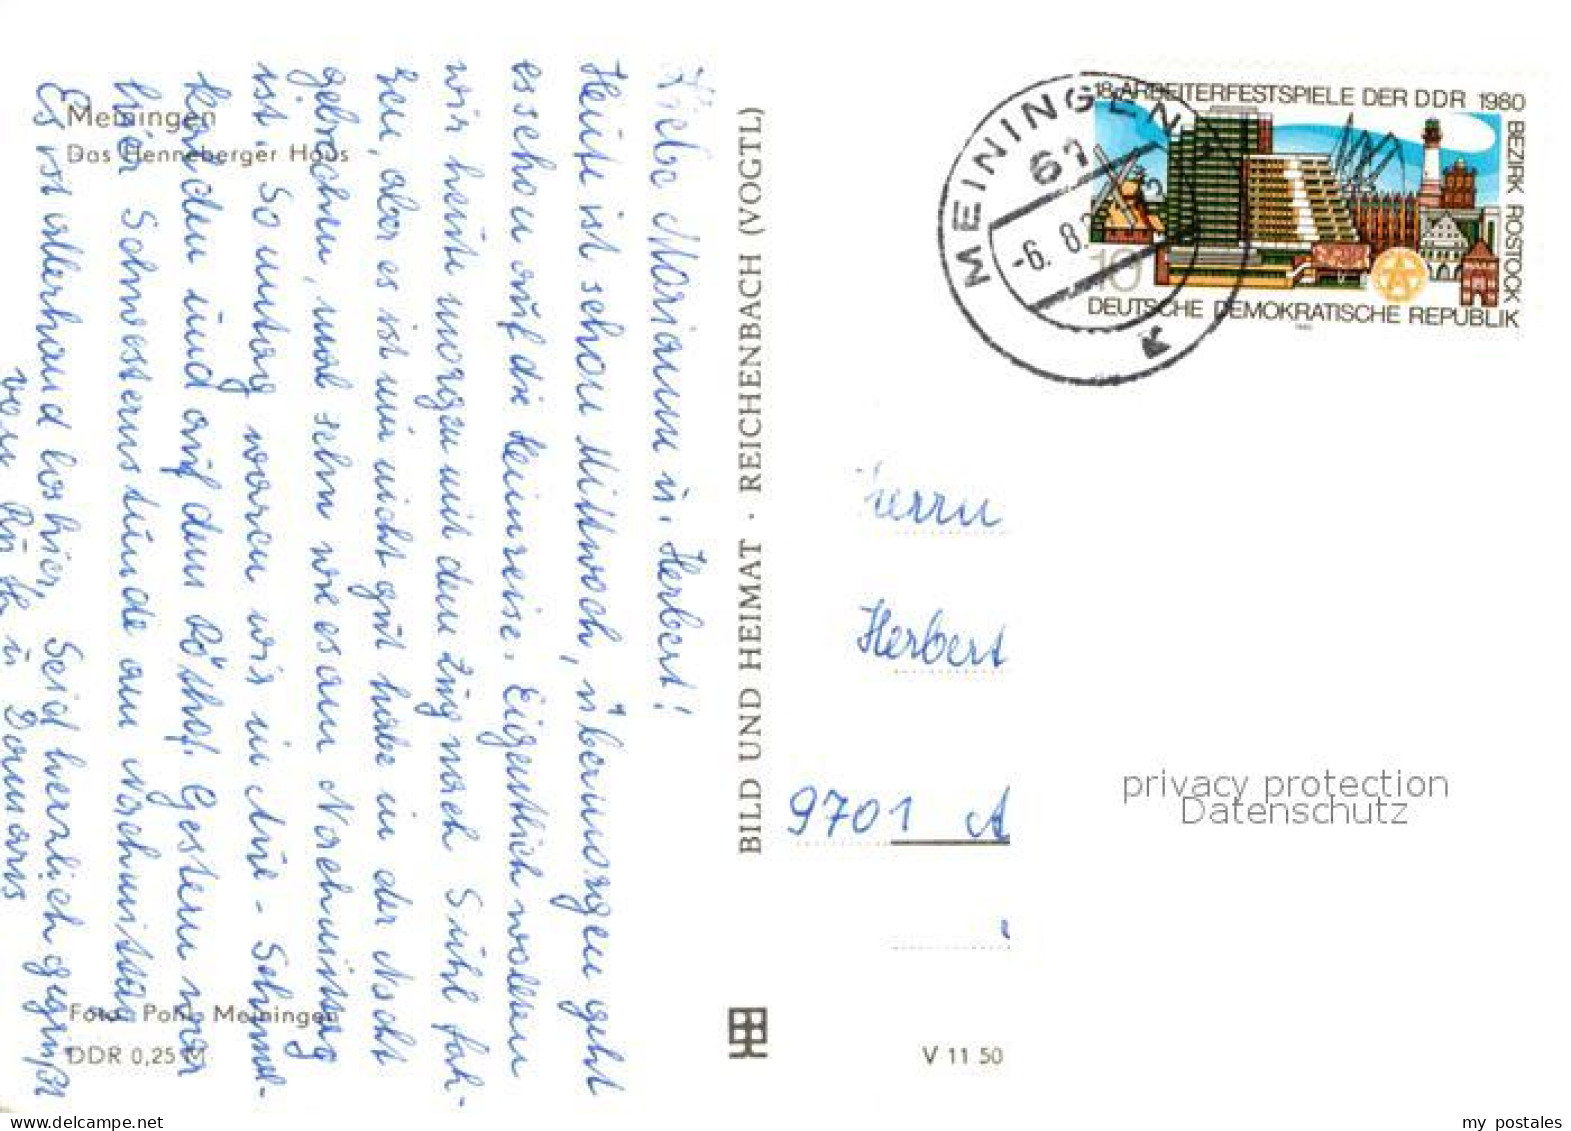 Meiningen
Das Henneberger Haus
Liebe Mariann u. Herbert!
Heute ist schon Mittwoch, übermorgen geht
es schon auf die Heimreise. Eigentlich wollten
wir heute morgen mit dem Zug nach Suhl fah-
ren, aber es ist mir nicht gut habe in der Nacht
gebrochen, mal sehn wie es am Nachmittag
ist. Sonntag waren wir in Aue-Schmal-
kalden und auf dem Röthof. Gestern war
hier Schwesternstunde am Nachmittag
Es ist allerhand los hier. Seid herzlich gegrüßt
von u.
Foto: Pohl, Meiningen
DDR 0,25 M
BILD UND HEIMAT · REICHENBACH (VOGTL)
V 11 50
MEININGEN
61
-6. 8.
K
18. ARBEITERFESTSPIELE DER DDR 1980
BEZIRK ROSTOCK
10
DEUTSCHE DEMOKRATISCHE REPUBLIK
Herrn
Herbert
9701 A
privacy protection
Datenschutz
my_postales